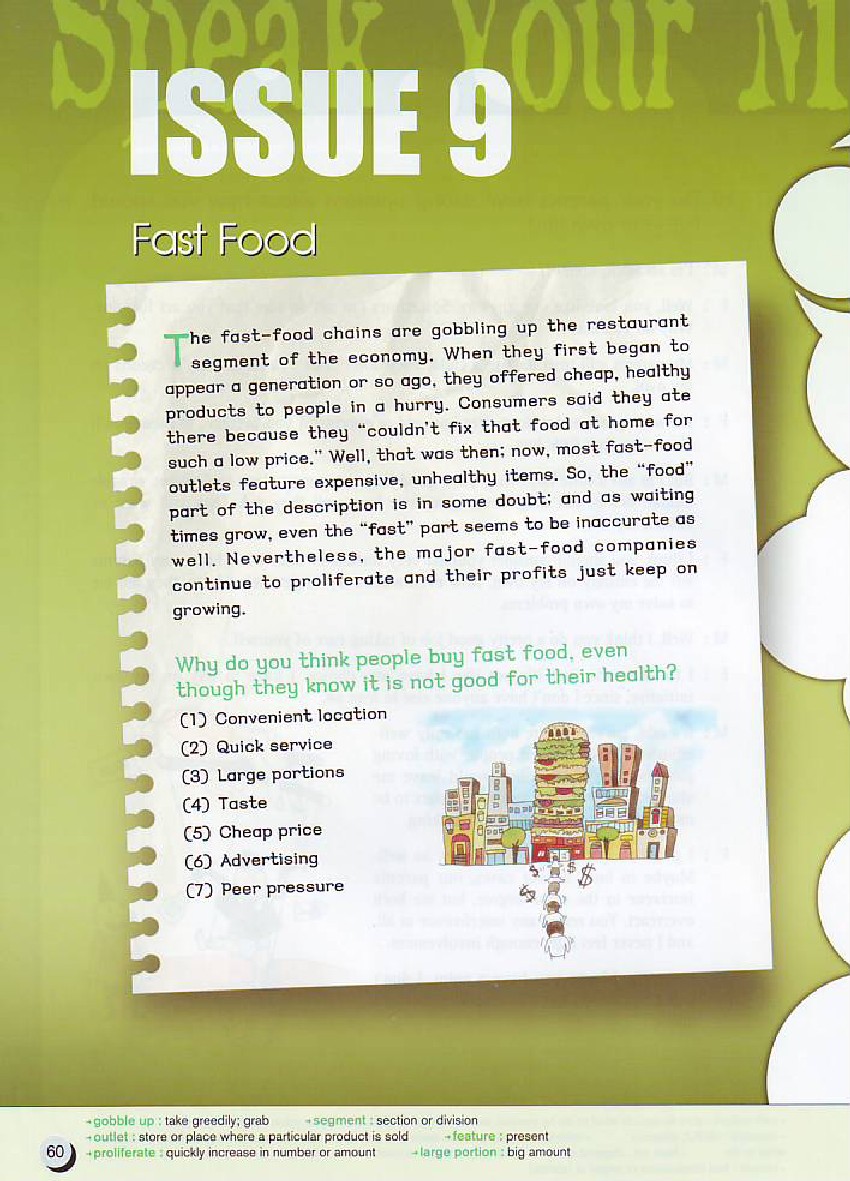 Speak Your M
ISSUE 9
Fast Food
The fast-food chains are gobbling up the restaurant
segment of the economy. When they first began to
appear a generation or so ago, they offered cheap, healthy
products to people in a hurry. Consumers said they ate
there because they "couldn't fix that food at home for
such a low price." Well, that was then; now, most fast-food
outlets feature expensive, unhealthy items. So, the "food"
part of the description is in some doubt; and as waiting
times grow, even the "fast" part seems to be inaccurate as
well. Nevertheless, the major fast-food companies
continue to proliferate and their profits just keep on
growing.
Why do you think people buy fast food, even
though they know it is not good for their health?
(1) Convenient location
(2) Quick service
(3) Large portions
(4) Taste
(5) Cheap price
(6) Advertising
(7) Peer pressure
$ $ $ $
gobble up : take greedily; grab segment : section or division
outlet : store or place where a particular product is sold feature : present
proliferate : quickly increase in number or amount large portion : big amount
60